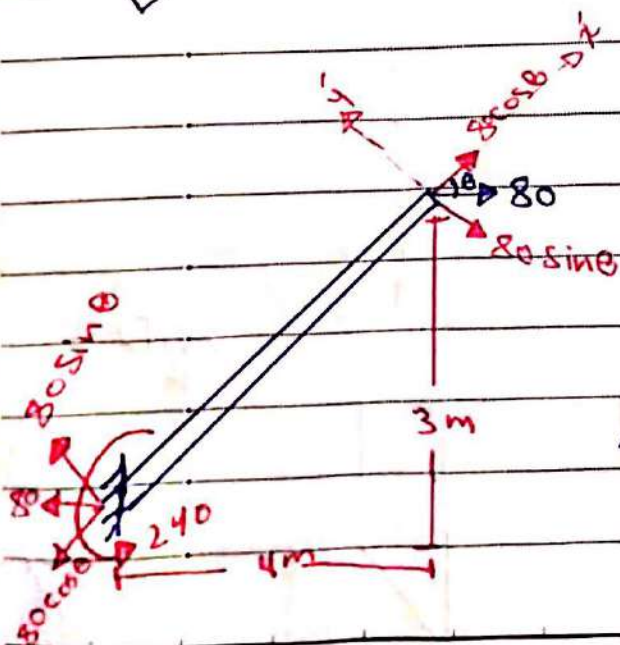 y'
80cosθ → x'
θ
80
80 sinθ
80 sin θ
3m
80
240
80cosθ
4m